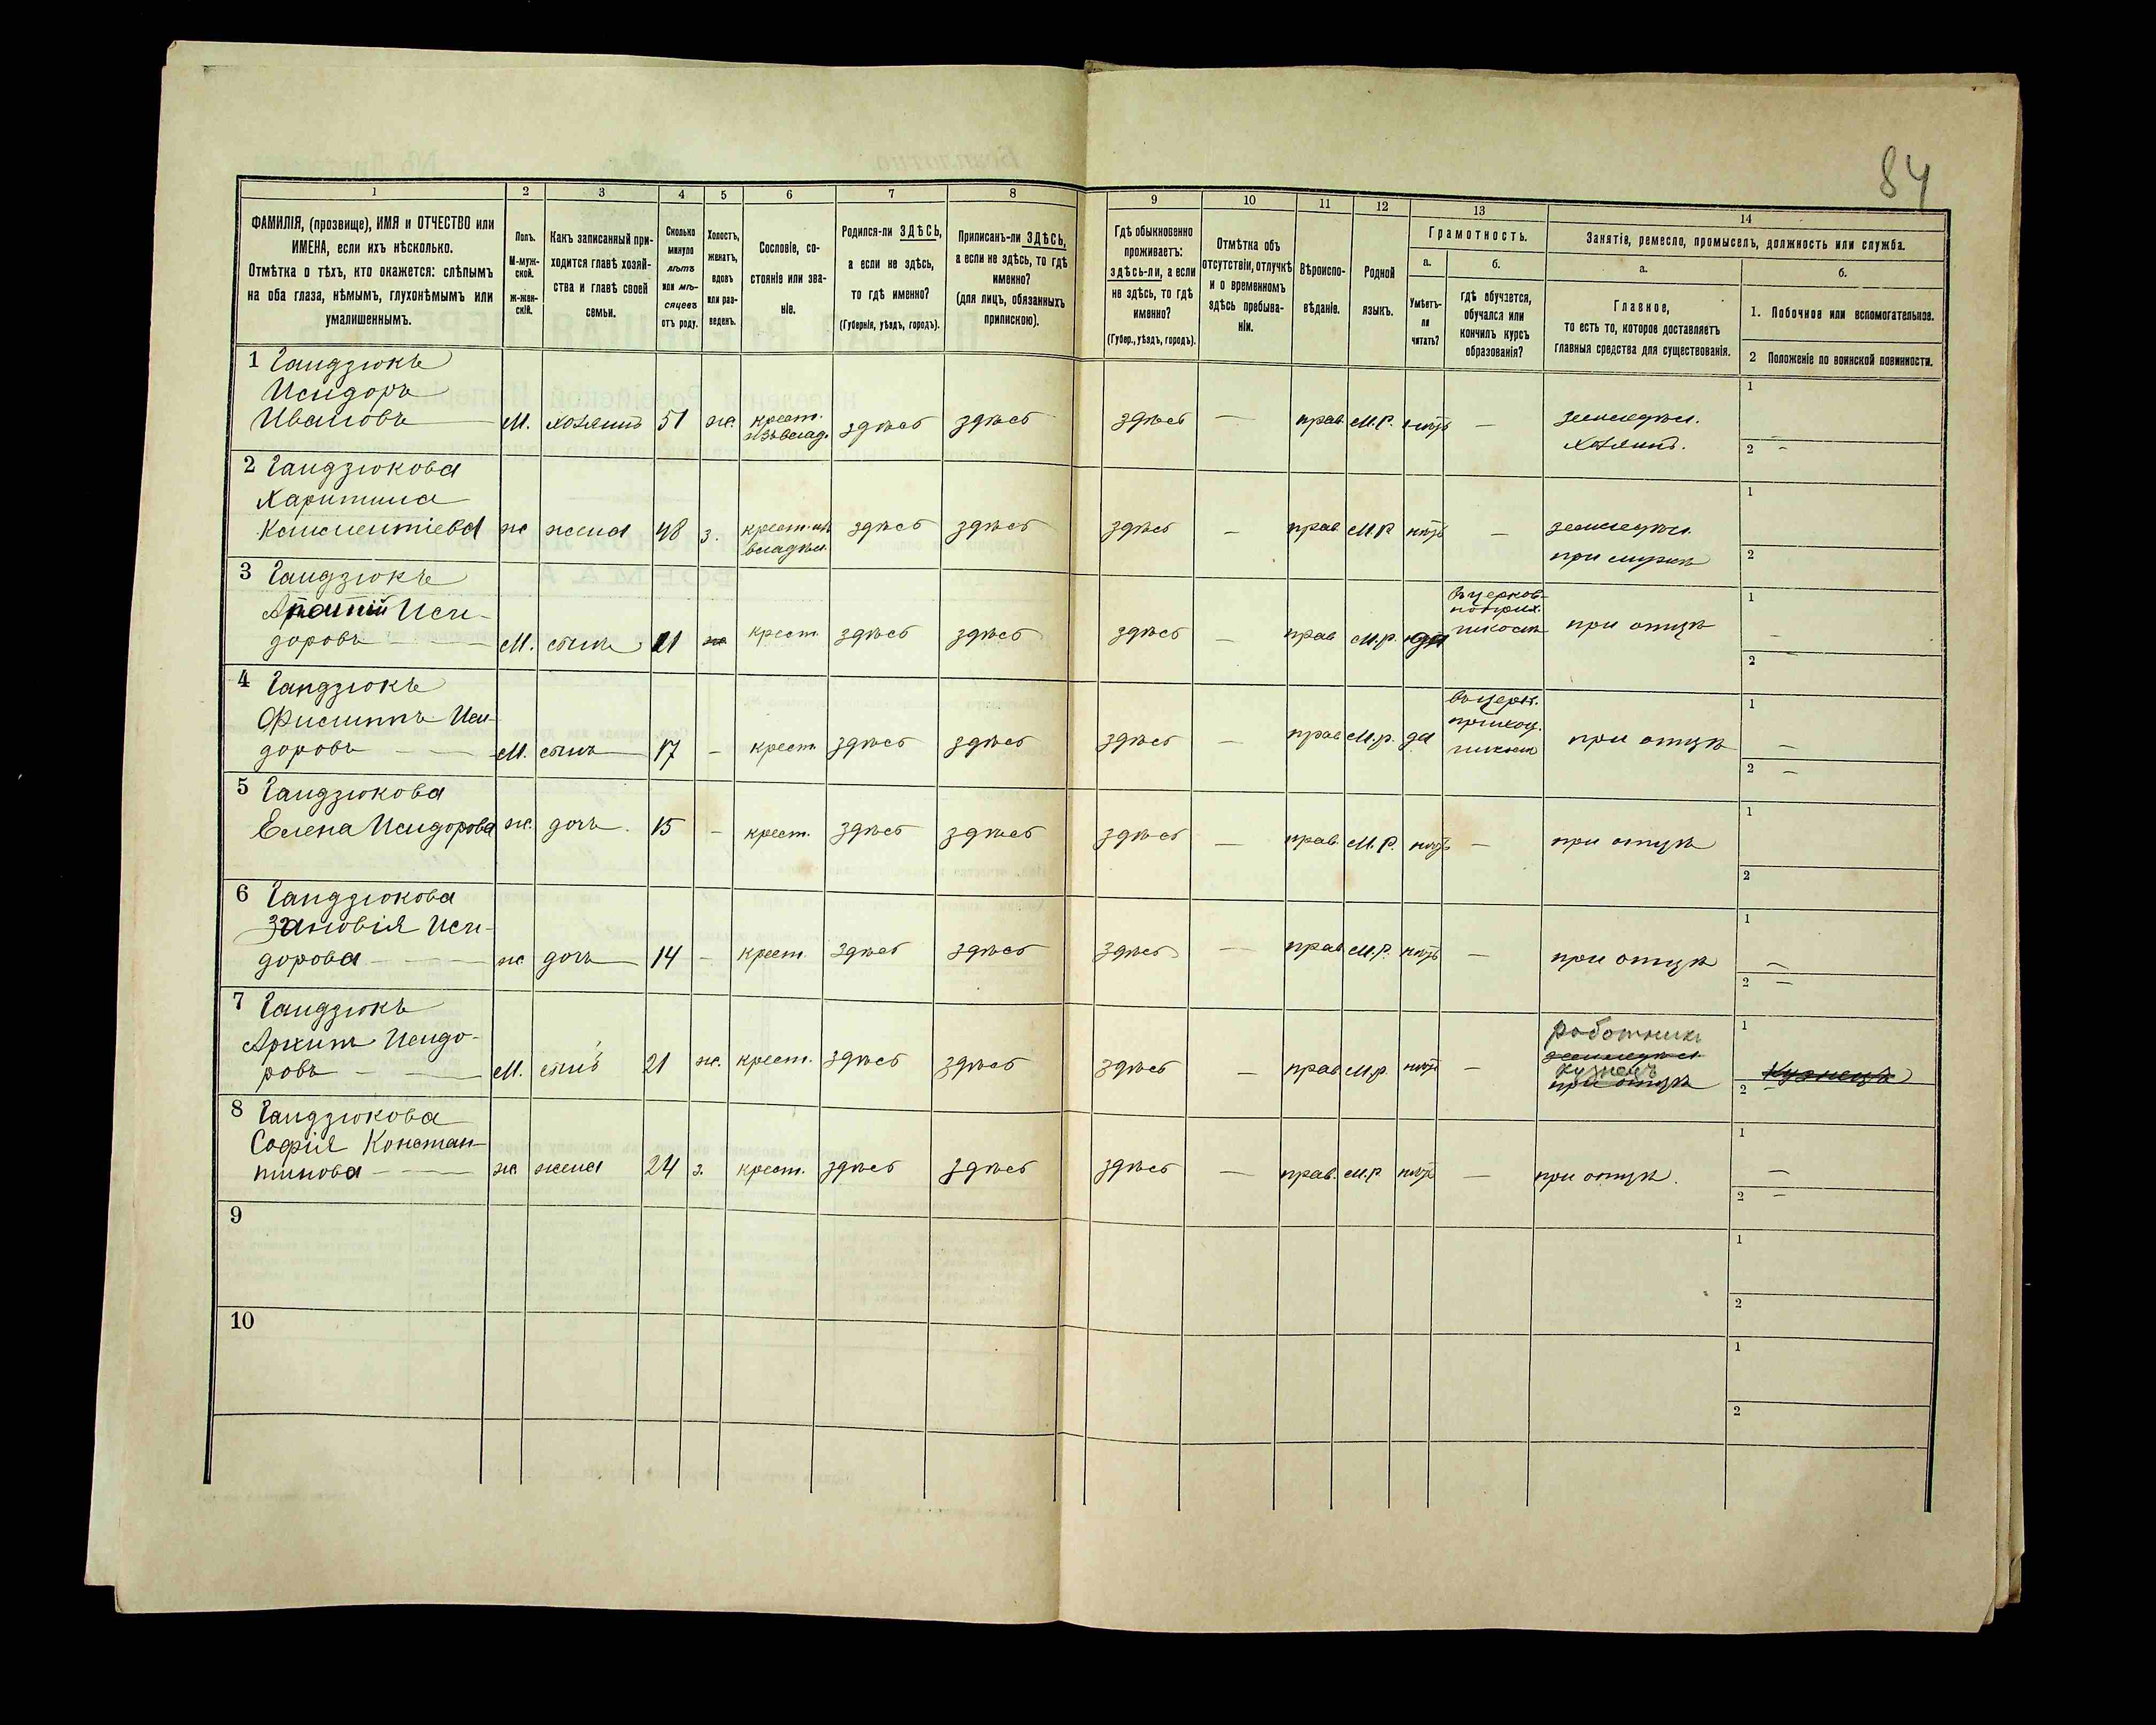 84
1 2 3 4 5 6 7 8 9 10 11 12 13 14
ФАМИЛІЯ, (прозвище), ИМЯ и ОТЧЕСТВО или
ИМЕНА, если ихъ нѣсколько.
Отмѣтка о тѣхъ, кто окажется: слѣпымъ
на оба глаза, нѣмымъ, глухонѣмымъ или
умалишеннымъ.
Полъ.
М-муж-
ской.
ж-жен-
скій.
Какъ записанный при-
ходится главѣ хозяй-
ства и главѣ своей
семьи.
Сколько
минуло
лѣтъ
или мѣ-
сяцевъ
отъ роду.
Холостъ,
женатъ,
вдовъ
или раз-
веденъ.
Сословіе, со-
стояніе или зва-
ніе.
Родился-ли ЗДѢСЬ,
а если не здѣсь,
то гдѣ именно?
(Губернія, уѣздъ, городъ).
Приписанъ-ли ЗДѢСЬ,
а если не здѣсь, то гдѣ
именно?
(для лицъ, обязанныхъ
припискою).
Гдѣ обыкновенно
проживаетъ:
здѣсь-ли, а если
не здѣсь, то гдѣ
именно?
(Губер., уѣздъ, городъ).
Отмѣтка объ
отсутствіи, отлучкѣ
и о временномъ
здѣсь пребыва-
ніи.
Вѣроиспо-
вѣданіе.
Родной
языкъ.
Грамотность.
а.
Умѣетъ-
ли
читать?
б.
гдѣ обучается,
обучался или
кончилъ курсъ
образованія?
Занятіе, ремесло, промыселъ, должность или служба.
а.
Главное,
то есть то, которое доставляетъ
главныя средства для существованія.
б.
1. Побочное или вспомогательное.
2 Положеніе по воинской повинности.
1 Гандзюкъ
Исидоръ
Ивановъ М. хозяинъ 51 ж. крест. здѣсь здѣсь здѣсь — прав. М.Р. нѣтъ — земледѣл. 1
изъ влад. хозяинъ. 2 —
2 Гандзюкова
Харитина
Климентіева ж жена 48 з. крест. изъ здѣсь здѣсь здѣсь — прав. М.Р. нѣтъ — земледѣл. 1
владѣл. при мужѣ 2
3 Гандзюкъ
Исидоровъ М. сынъ крест. здѣсь здѣсь здѣсь — прав. м.р. да школѣ при отцѣ 1 —
2 —
4 Гандзюкъ
Филиппъ Иси-
доровъ М. сынъ 17 — крест. здѣсь здѣсь здѣсь — прав. М.р. да въ церк. приход. школѣ при отцѣ 1 —
2 —
5 Гандзюкова
Елена Исидорова ж. дочь. 15 — крест. здѣсь здѣсь здѣсь — прав. М.Р. нѣтъ — при отцѣ 1
2
6 Гандзюкова
Зиновія Иси-
дорова ж дочь 14 — крест. здѣсь здѣсь здѣсь — прав. М.Р. нѣтъ — при отцѣ 1 —
2 —
7 Гандзюкъ
Архипъ Исидо-
ровъ М. сынъ 21 ж. крест. здѣсь здѣсь здѣсь — прав. М.р. нѣтъ — работникъ 1
земледѣл.
кузнецъ кузнецъ
при отцѣ 2 —
8 Гандзюкова
Софія Констан-
тинова ж жена 24 з. крест. здѣсь здѣсь здѣсь — прав. м.р. нѣтъ — при отцѣ. 1 —
2 —
9
1
2
10
1
2